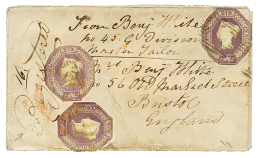 From Benj White
no 45 G Division
Master Tailor
Mrs Benj White
no 56 Old Market Street
Bristol
England